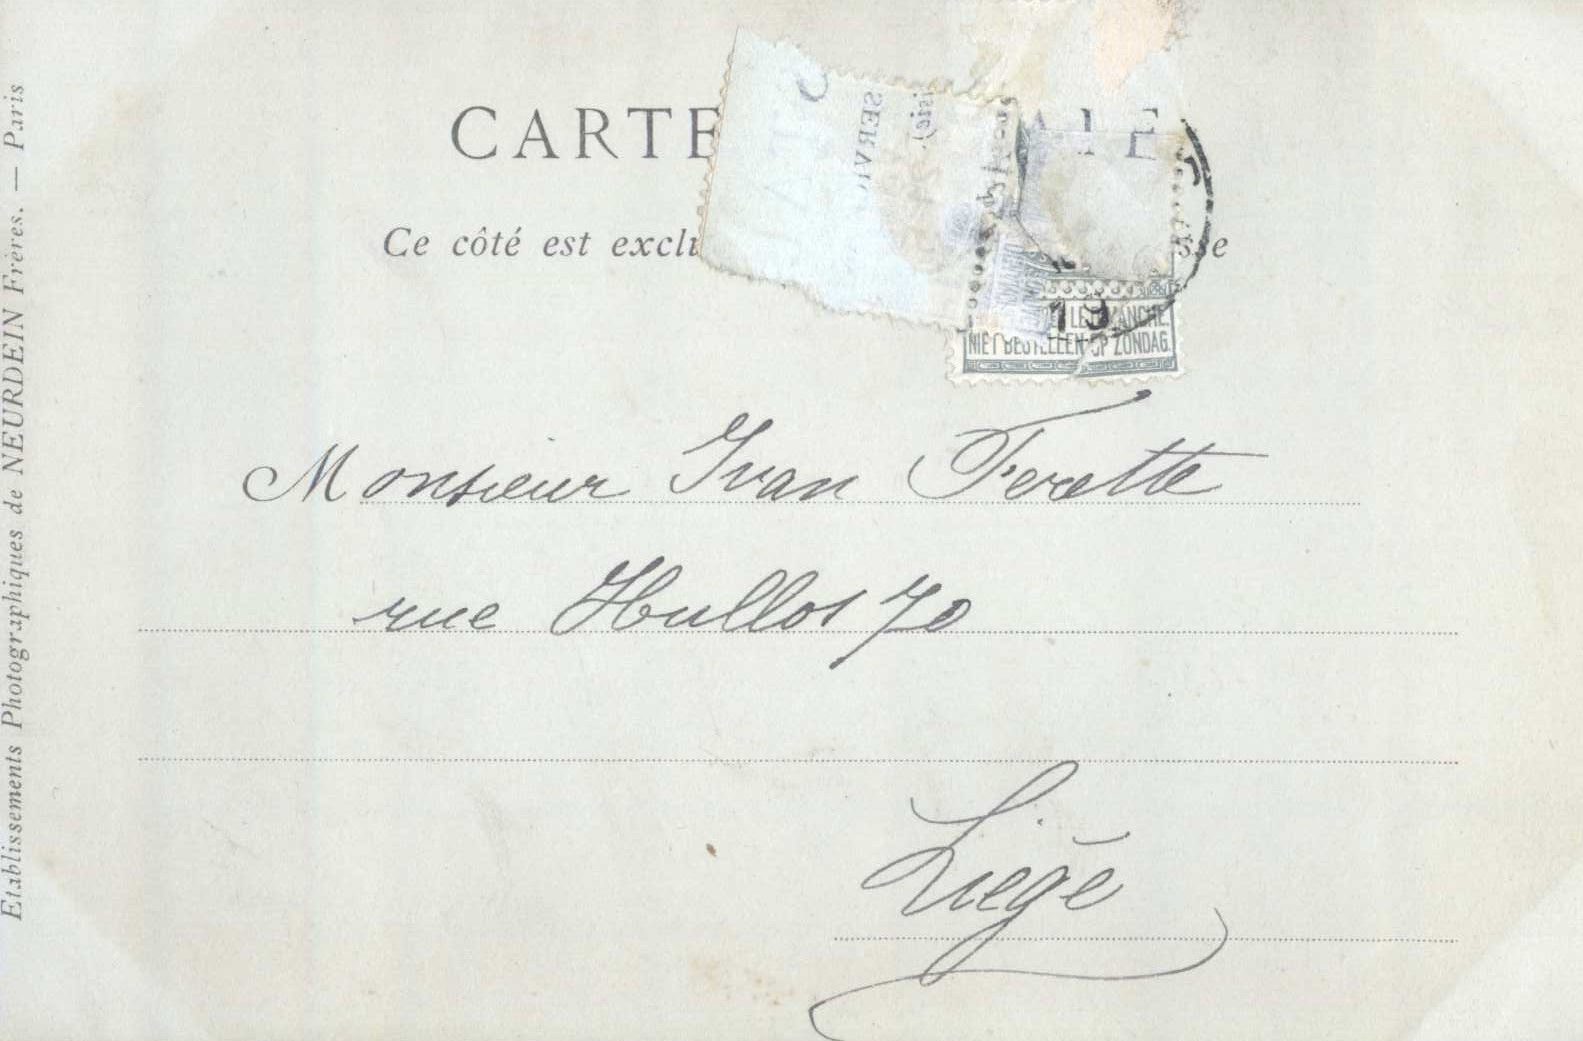 CARTE ALE
Ce côté est exclu sse
SERVIC
19
LE DIMANCHE.
NIET BESTELLEN OP ZONDAG.
Monsieur Ivan Ferette
rue Hullos 70
Liége
Etablissements Photographiques de NEURDEIN Frères. — Paris